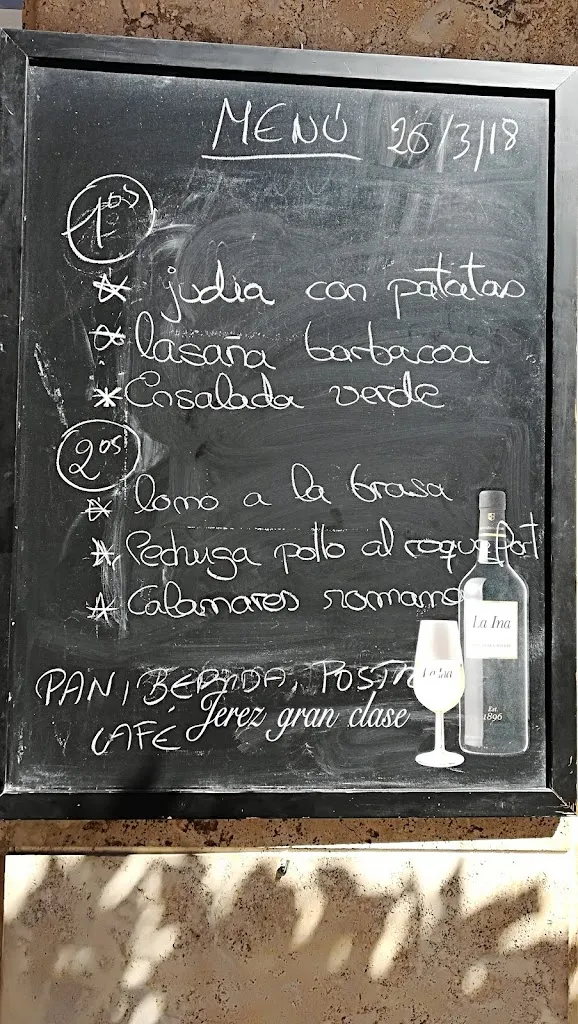 MENÚ 26/3/18
1os
* judia con patatas
* lasaña barbacoa
* Ensalada verde
2os
* lomo a la brasa
* Pechuga pollo al roquefort
* Calamares romana
PAN, BEBIDA, POSTRE
CAFÉ
Jerez gran clase
La Ina
La Ina
Est.
1896